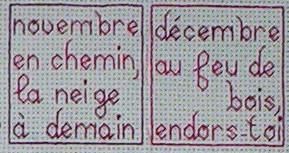 novembre
en chemin,
la neige
à demain
décembre
au feu de
bois,
endors-toi